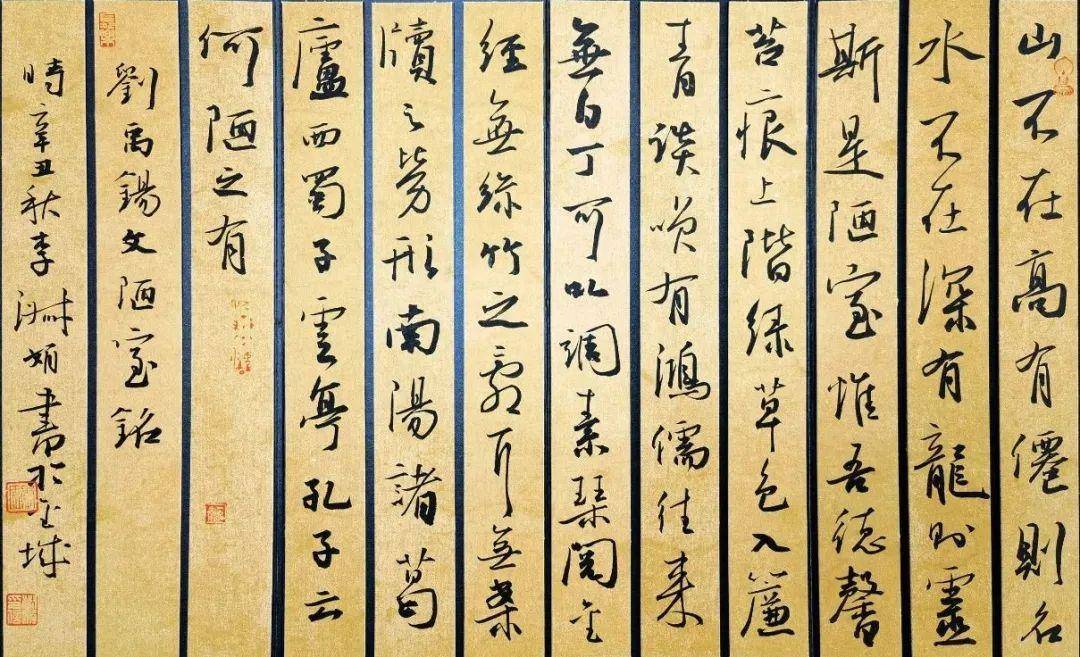 山不在高有僊則名
水不在深有龍則靈
斯是陋室惟吾德馨
苔痕上階綠草色入簾
青談笑有鴻儒往來
無白丁可以調素琴閱金
經無絲竹之亂耳無案
牘之勞形南陽諸葛
廬西蜀子雲亭孔子云
何陋之有
劉禹錫文陋室銘
時辛丑秋李淑娟書於金城